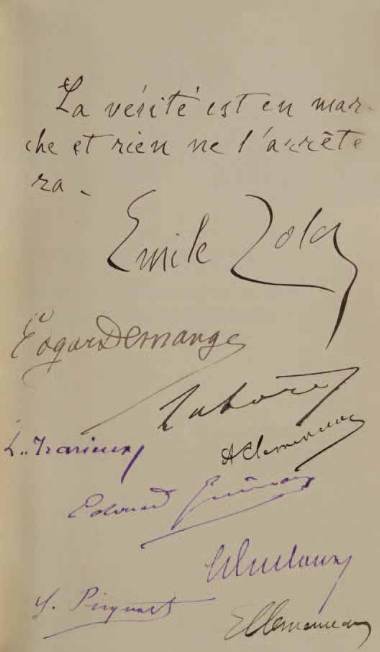 La vérité est en mar-
che et rien ne l'arrête
ra -
Emile Zola
Edgar Demange
Labori
L. Trarieux
A Clemenceau
Edouard Grimaux
E Duclaux
G. Picquart
G Clemenceau